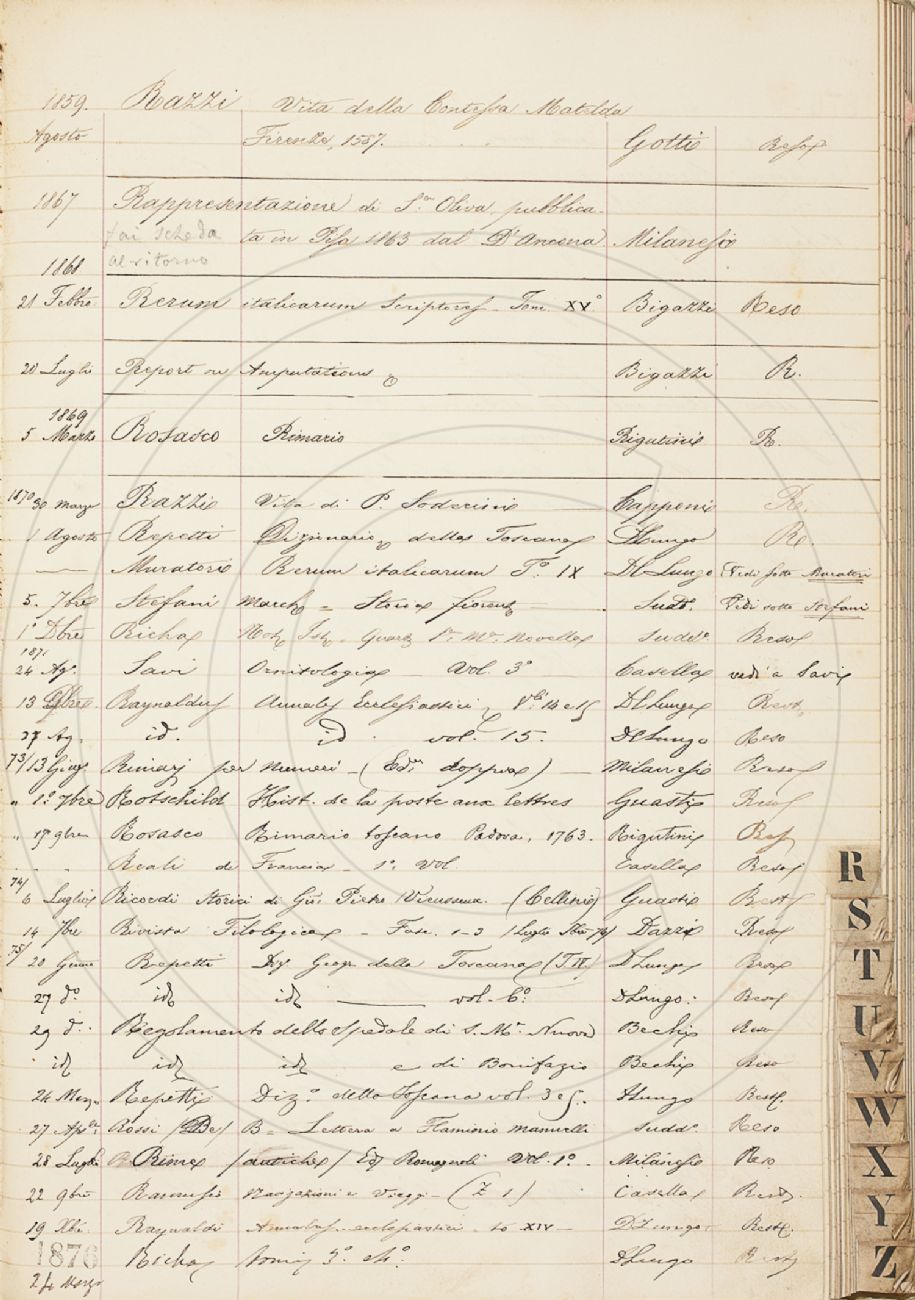 1859. Razzi Vita della Contessa Matelda
Agosto Firenze, 1587. Gotti Reso
1867 Rappresentazione di S.ta Oliva, pubblica-
fai scheda ta in Pisa 1863 dal D'Ancona Milanesi
al ritorno
1868
21 Febbr. Rerum italicarum Scriptores - Tom. XV° Bigazzi Reso
20 Luglio Report on Amputations Bigazzi R.
1869
5 Marzo Rosasco Rimario Rigutini R.
1870 30 Marzo Razzi Vita di P. Soderini Capponi Re.
1 Agosto Repetti Dizionario della Toscana DLungo Re.
— Muratori Rerum italicarum T.° IX Del Lungo Vedi sotto Muratori
5. 7bre Stefani March. = Storia fiorent. Sudd.° Vedi sotto Stefani
1° Dbre Richa Not. Ist. Quart. S. M. Novella Sudd.° Reso
1871
24 Ag. Savi Ornitologia Vol. 3° Casella vedi a Savi
13 Raynaldus Annales Ecclesiastici, V.li 14 e 15 Del Lungo Rest.
27 Ag. id. id. vol. 15. Del Lungo Reso
73/13 Giug. Rimarj per Numeri - (Ediz. doppia) - Milanesi Reso
" 1° 7bre Rotschild Hist. de la poste aux lettres Guasti Reso
" 17 9bre Rosasco Rimario toscano Padova, 1763. Rigutini Res.
" " Reali di Francia - 1° Vol Casella Reso
74/
6 Luglio Ricordi Storici di Gio. Pietro (Cellini) Guasti Rest.
14 7bre Rivista Filologica - Fasc. 1-3 (Luglio 74) Dazzi Reso
75/
20 Repetti Diz Geogr. della Toscana (T. II.) DLungo Reso
27 d° id. id. — vol. 6°: DLungo. Reso
29 d.° Regolamento dello Spedale di S. M.a Nuova Bechi Reso
id. id. id. e di Bonifazio Bechi Reso
24 Marzo Repetti Diz.° della Toscana vol. 3 e 5. DLungo Rest.
27 Rossi (De) B - Lettera a Flaminio Mannelli Sudd.° Reso
28 Luglio Rime (antiche) Ed. Romagnoli Vol. 1°. - Milanesi Reso
22 9bre Ramusio Navigazioni e Viaggi - (Z 1) Casella Rest.
19 Xbre Raynaldi Annales ecclesiastici to XIV - D Lungo. Rest.
1876 Richa Tomi 3° e 4°. DLungo Rest
24 Marzo
R
S
T
U
V
W
X
Y
Z